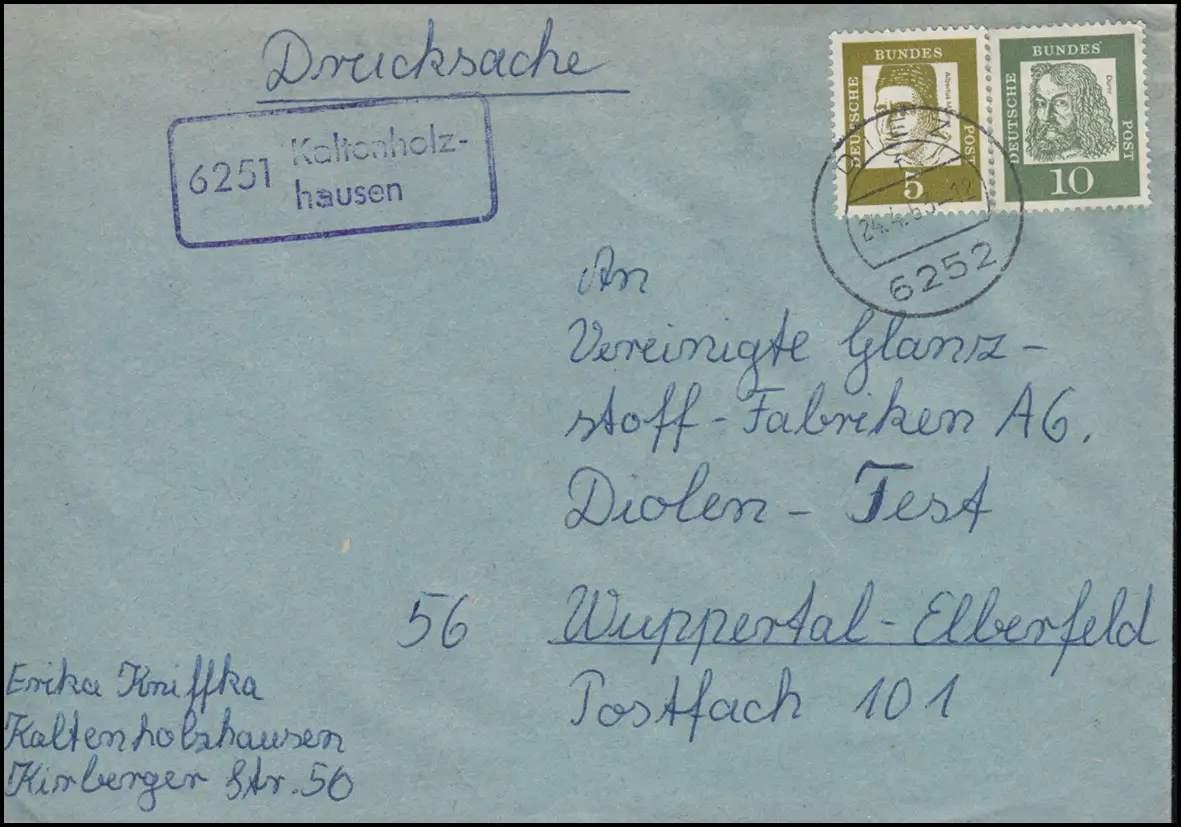 Drucksache
6251 Kaltenholz-
hausen
DEUTSCHE BUNDES POST
Albertus
5
DEUTSCHE BUNDES POST
Dürer
10
24.4.63-12
6252
An
Vereinigte Glanz-
stoff-Fabriken AG.
Diolen - Test
56 Wuppertal-Elberfeld
Postfach 101
Erika Kniffka
Kaltenholzhausen
Kirberger Str. 56